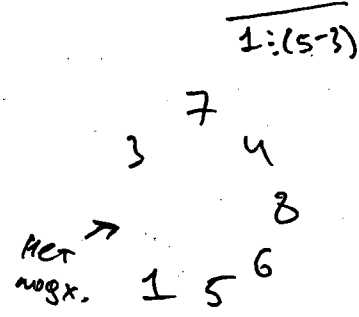 1:(5-3)
7
3 4
8
Нет
подх.
1 5 6